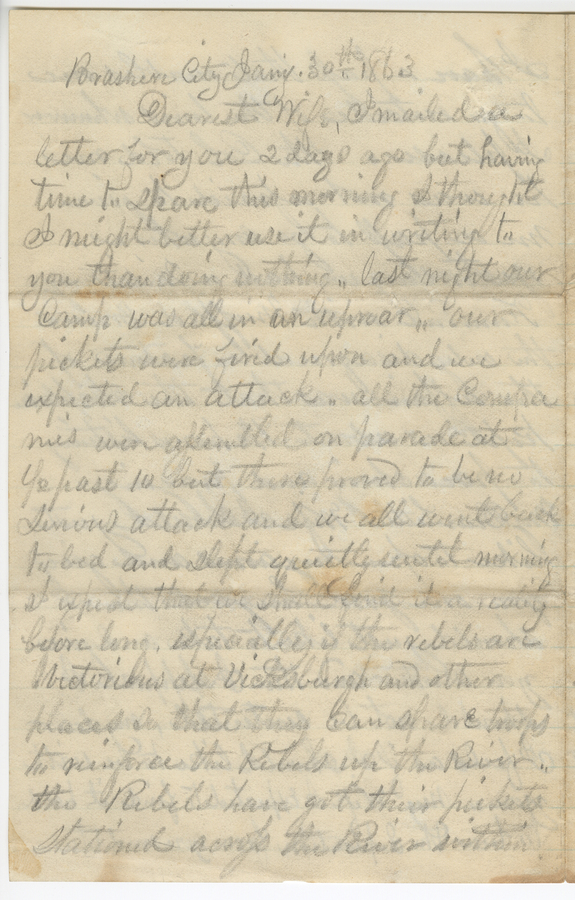 Brashere City Jany. 30th 1863
Dearest Wife, I mailed a
letter for you 2 days ago but having
time to spare this morning I thought
I might better use it in writing to
you than doing nothing,, last night our
Camp was all in an uproar,, our
pickets were fired upon and we
expected an attack,, all the Compa
nies were assembled on parade at
½ past 10 but there proved to be no
Serious attack and we all went back
to bed and slept quietly until morning
I expect that we shall find it a reality
before long, especially if the rebels are
Victorious at Vicksburgh and other
places so that they can spare troops
to reinforce the Rebels up the River,,
the Rebels have got their pickets
Stationed across the River within